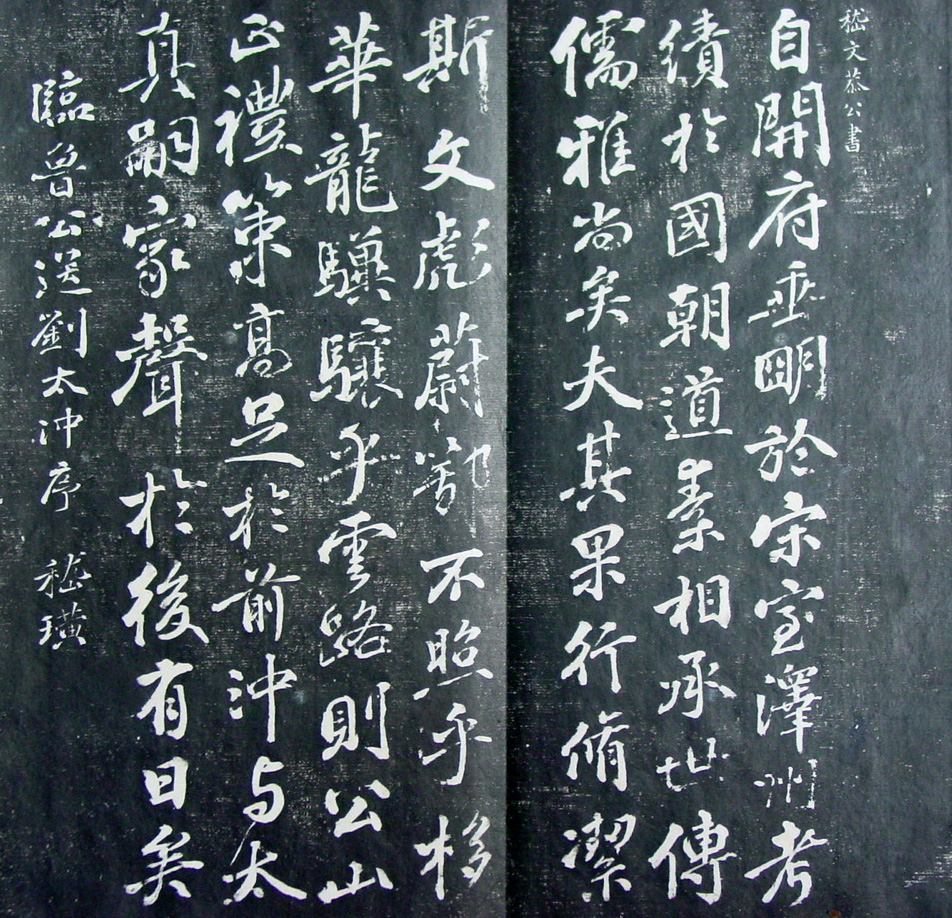 嵇文恭公書
自開府垂明於宋室澤州考
績於國朝道素相承世傳
儒雅尚矣夫其果行脩潔
斯文彪蔚鄂不照乎棣
華龍驤驤乎雲路則公山
正禮策高足於前沖与太
真嗣家聲於後有日矣
臨魯公送劉太沖序 嵇璜